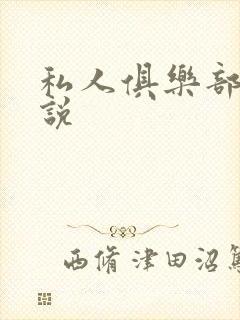 私人俱樂部
說
西脩 津田沼篤